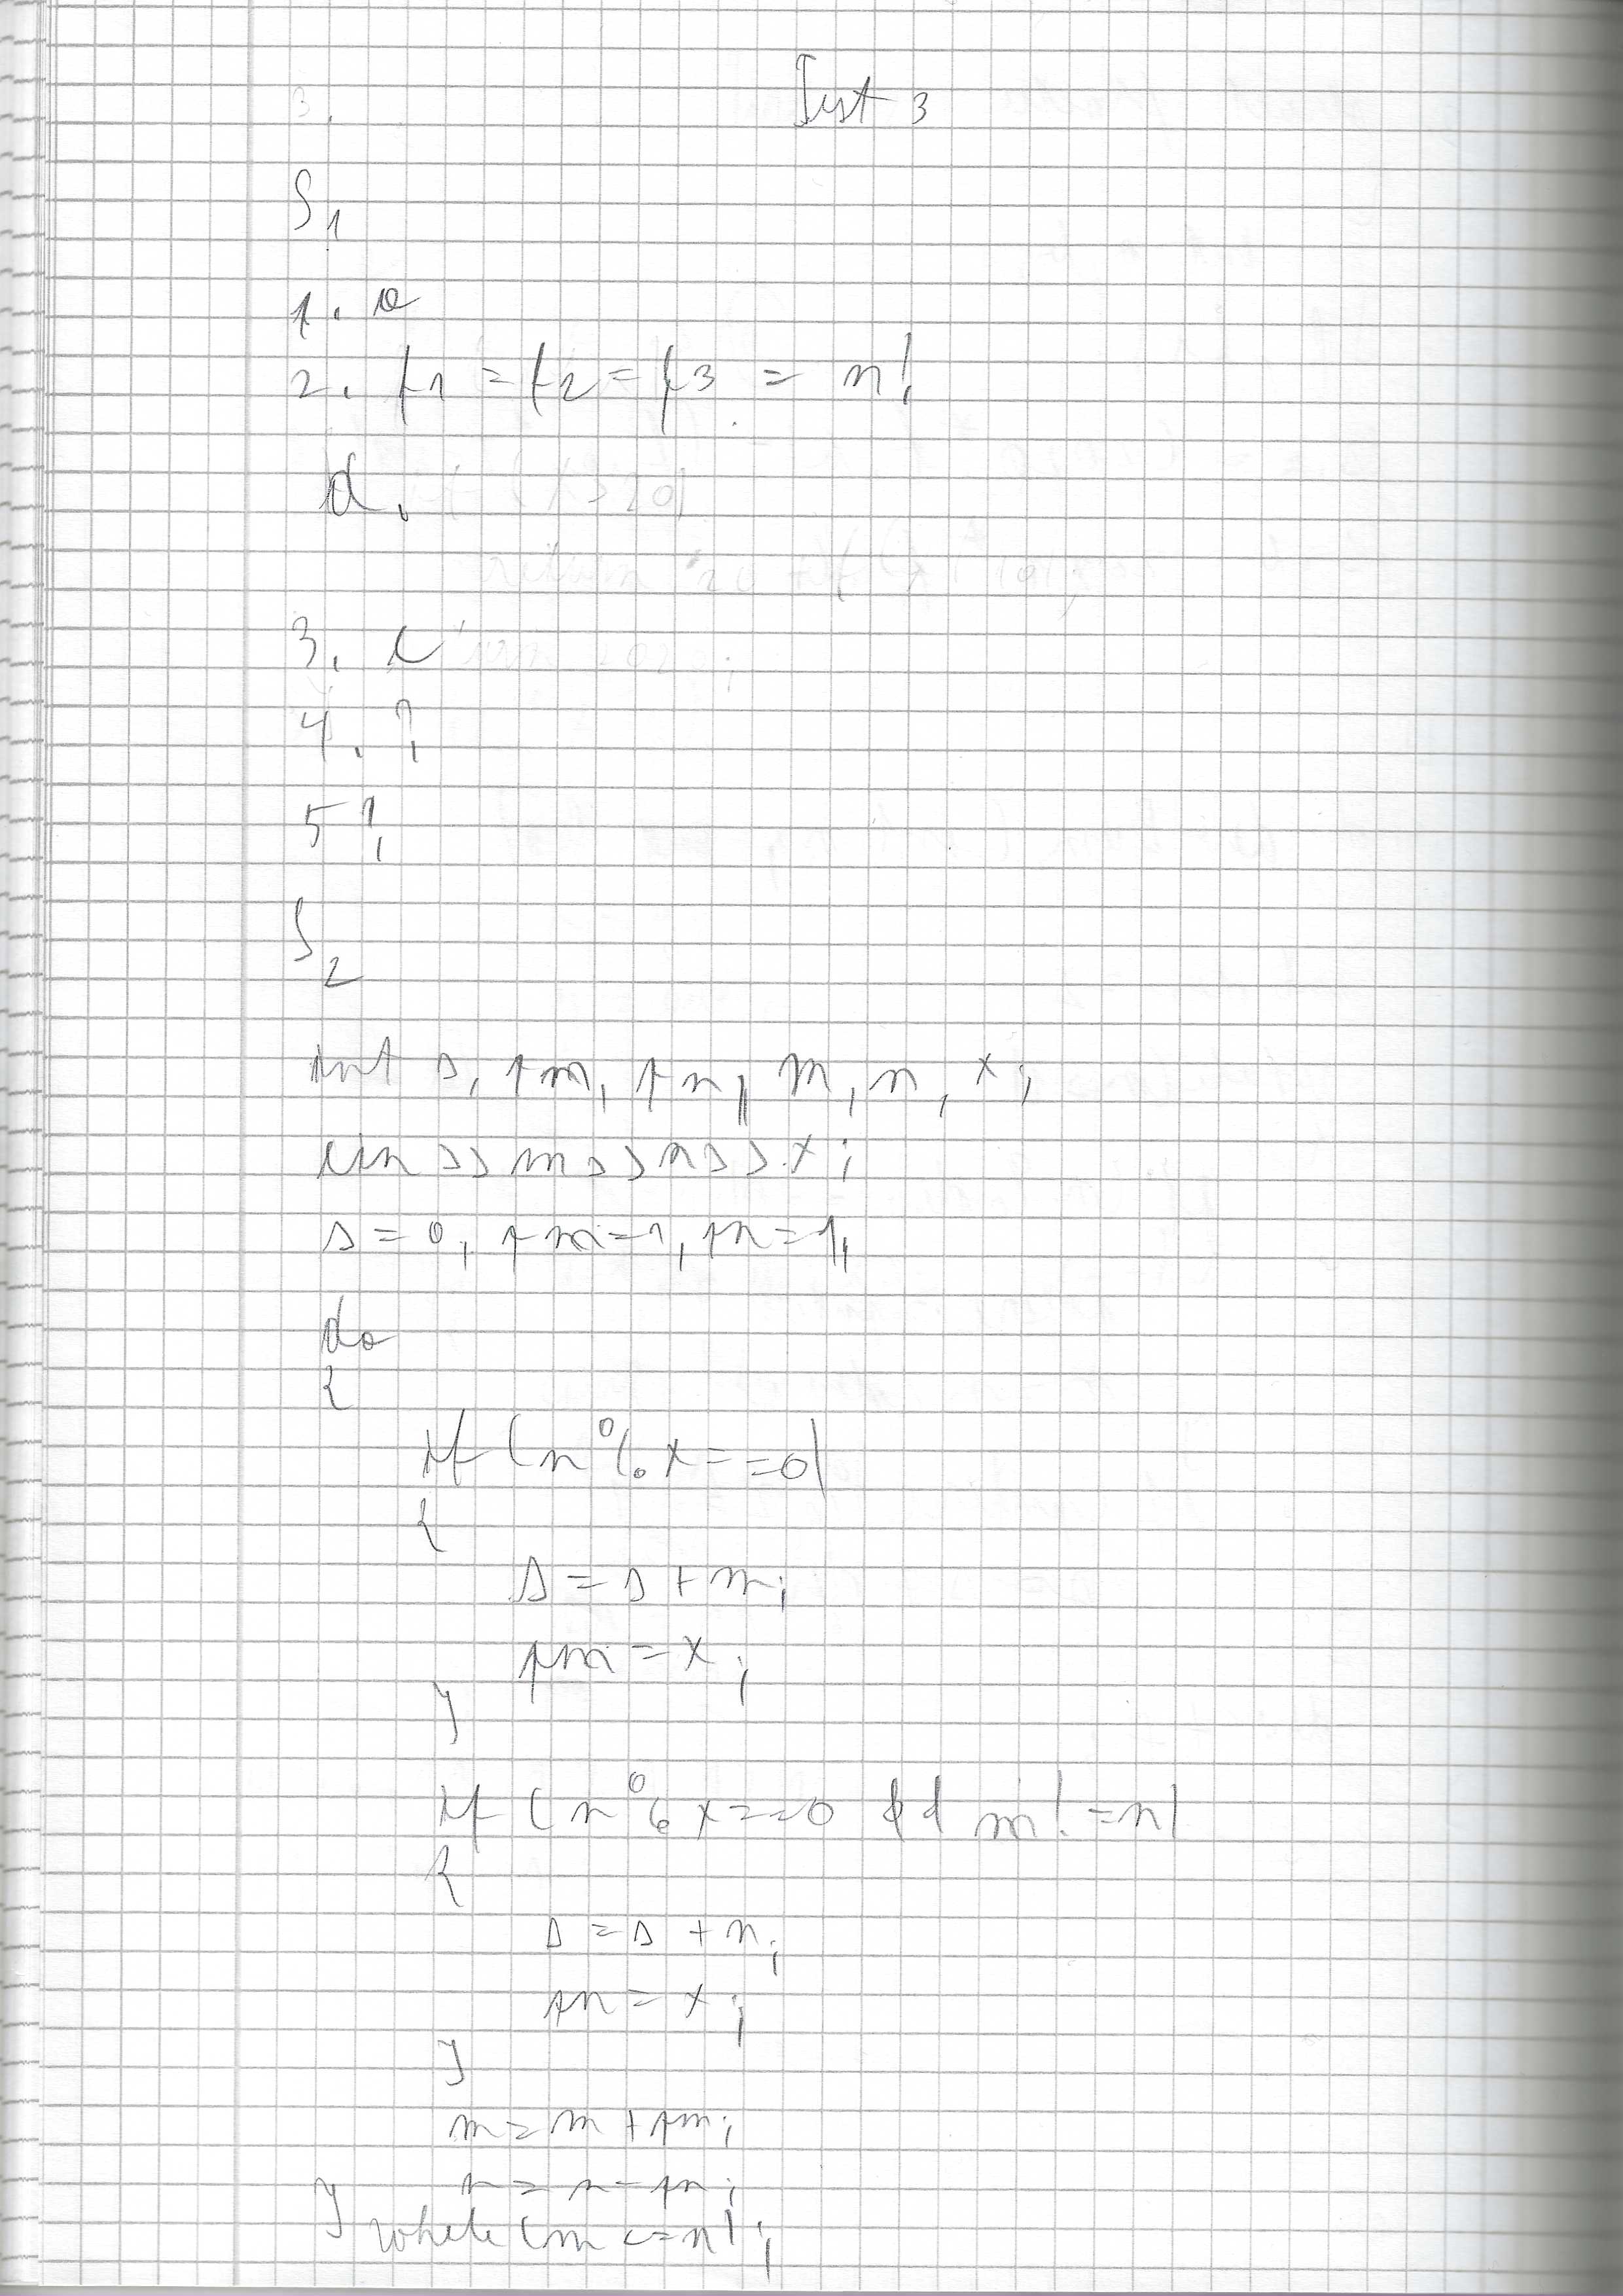 3.
Test 3
S1
1. a
2. f1 = f2 = f3 = n!
d.
3. c
4. ?
5 ?
S2
int s, pm, pn, m, n, x;
cin >> m >> n >> x;
s = 0, pm = 1, pn = 1,
do
{
if (n % x == 0)
{
s = s + m;
pm = x;
}
if (n % x == 0 && m != n)
{
s = s + n;
pn = x;
}
m = m + pm;
n = n - pn;
} while (m <= n);